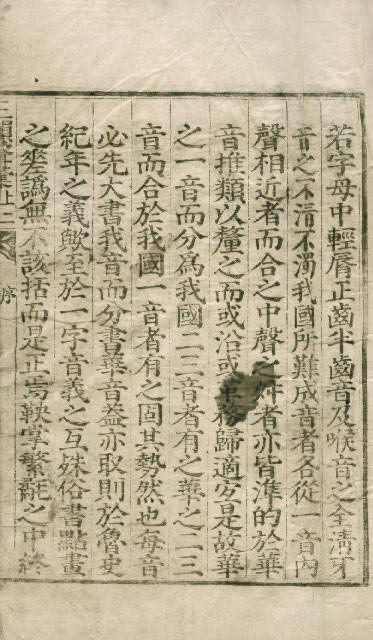 若字母中輕脣正齒半齒音及喉音之全清牙
音之不清不濁我國所難成音者各從一音內
聲相近者而合之中聲之者亦皆準的於華
音推類以釐之而或沿或革務歸適宜是故華
之一音而分爲我國二三音者有之華之二三
音而合於我國一音者有之固其勢然也每音
必先大書我音而分書華音蓋亦取則於魯史
紀年之義歟至於一字音義之互殊俗書點畫
之差譌無不該括而是正焉鞅掌繁氄之中終
序